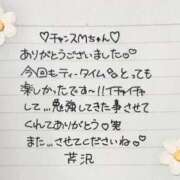 ♡チャンスMちゃん♡
ありがとうございました♡
今回もティータイム♡とっても
楽しかったです〜!!イチャイチャ
して...勉強してきた事させて
くれてありがとう♡笑
また...させてくださいね♡
芹沢